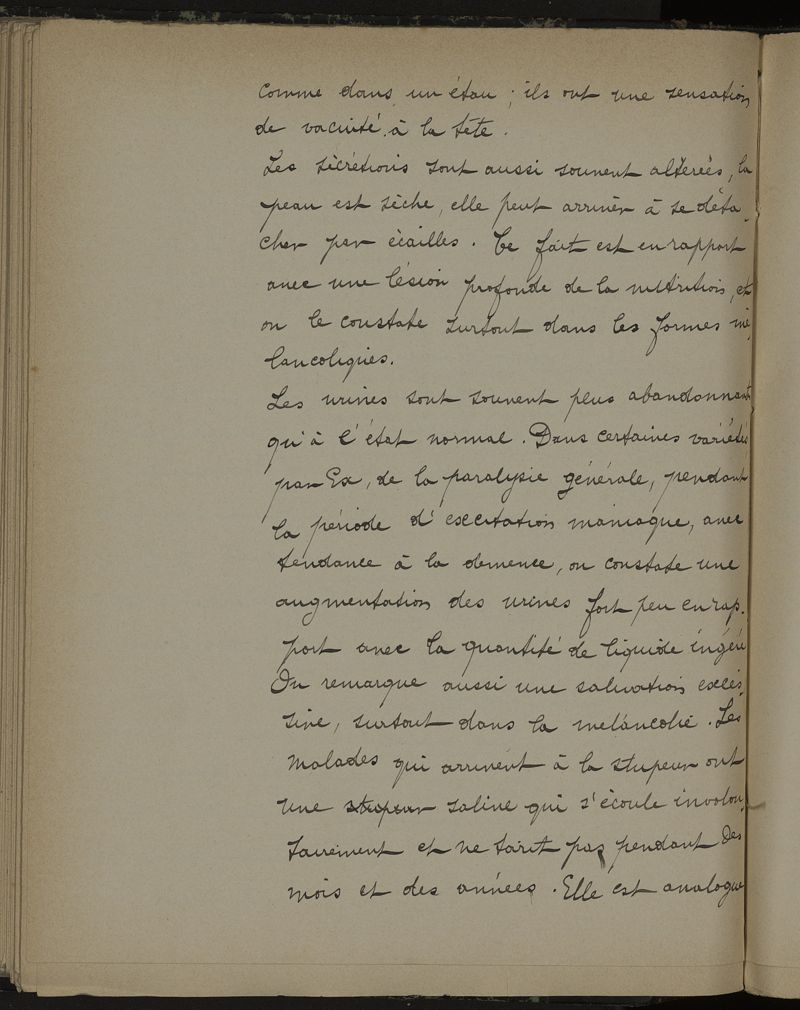 comme dans un étau ; ils ont une sensation
de vacuité à la tête.
Les sécrétions sont aussi souvent altérées, la
peau est sèche, elle peut arriver à se déta-
cher par écailles. Ce fait est en rapport
avec une lésion profonde de la nutrition, et
on le constate surtout dans les formes mé-
lancoliques.
Les urines sont souvent plus abandonnant
qu'à l'état normal. Dans certaines variétés
par Ex, de la paralysie générale, pendant
la période d'excitation maniaque, avec
tendance à la demence, on constate une
augmentation des urines fort peu en rap-
port avec la quantité de liquide ingéré
On remarque aussi une salivation exces-
sive, surtout dans la melancolie. Les
malades qui arrivent à la stupeur ont
une stupeur saline qui s'écoule involon-
tairement et ne tarit pas pendant des
mois et des années. Elle est analogue